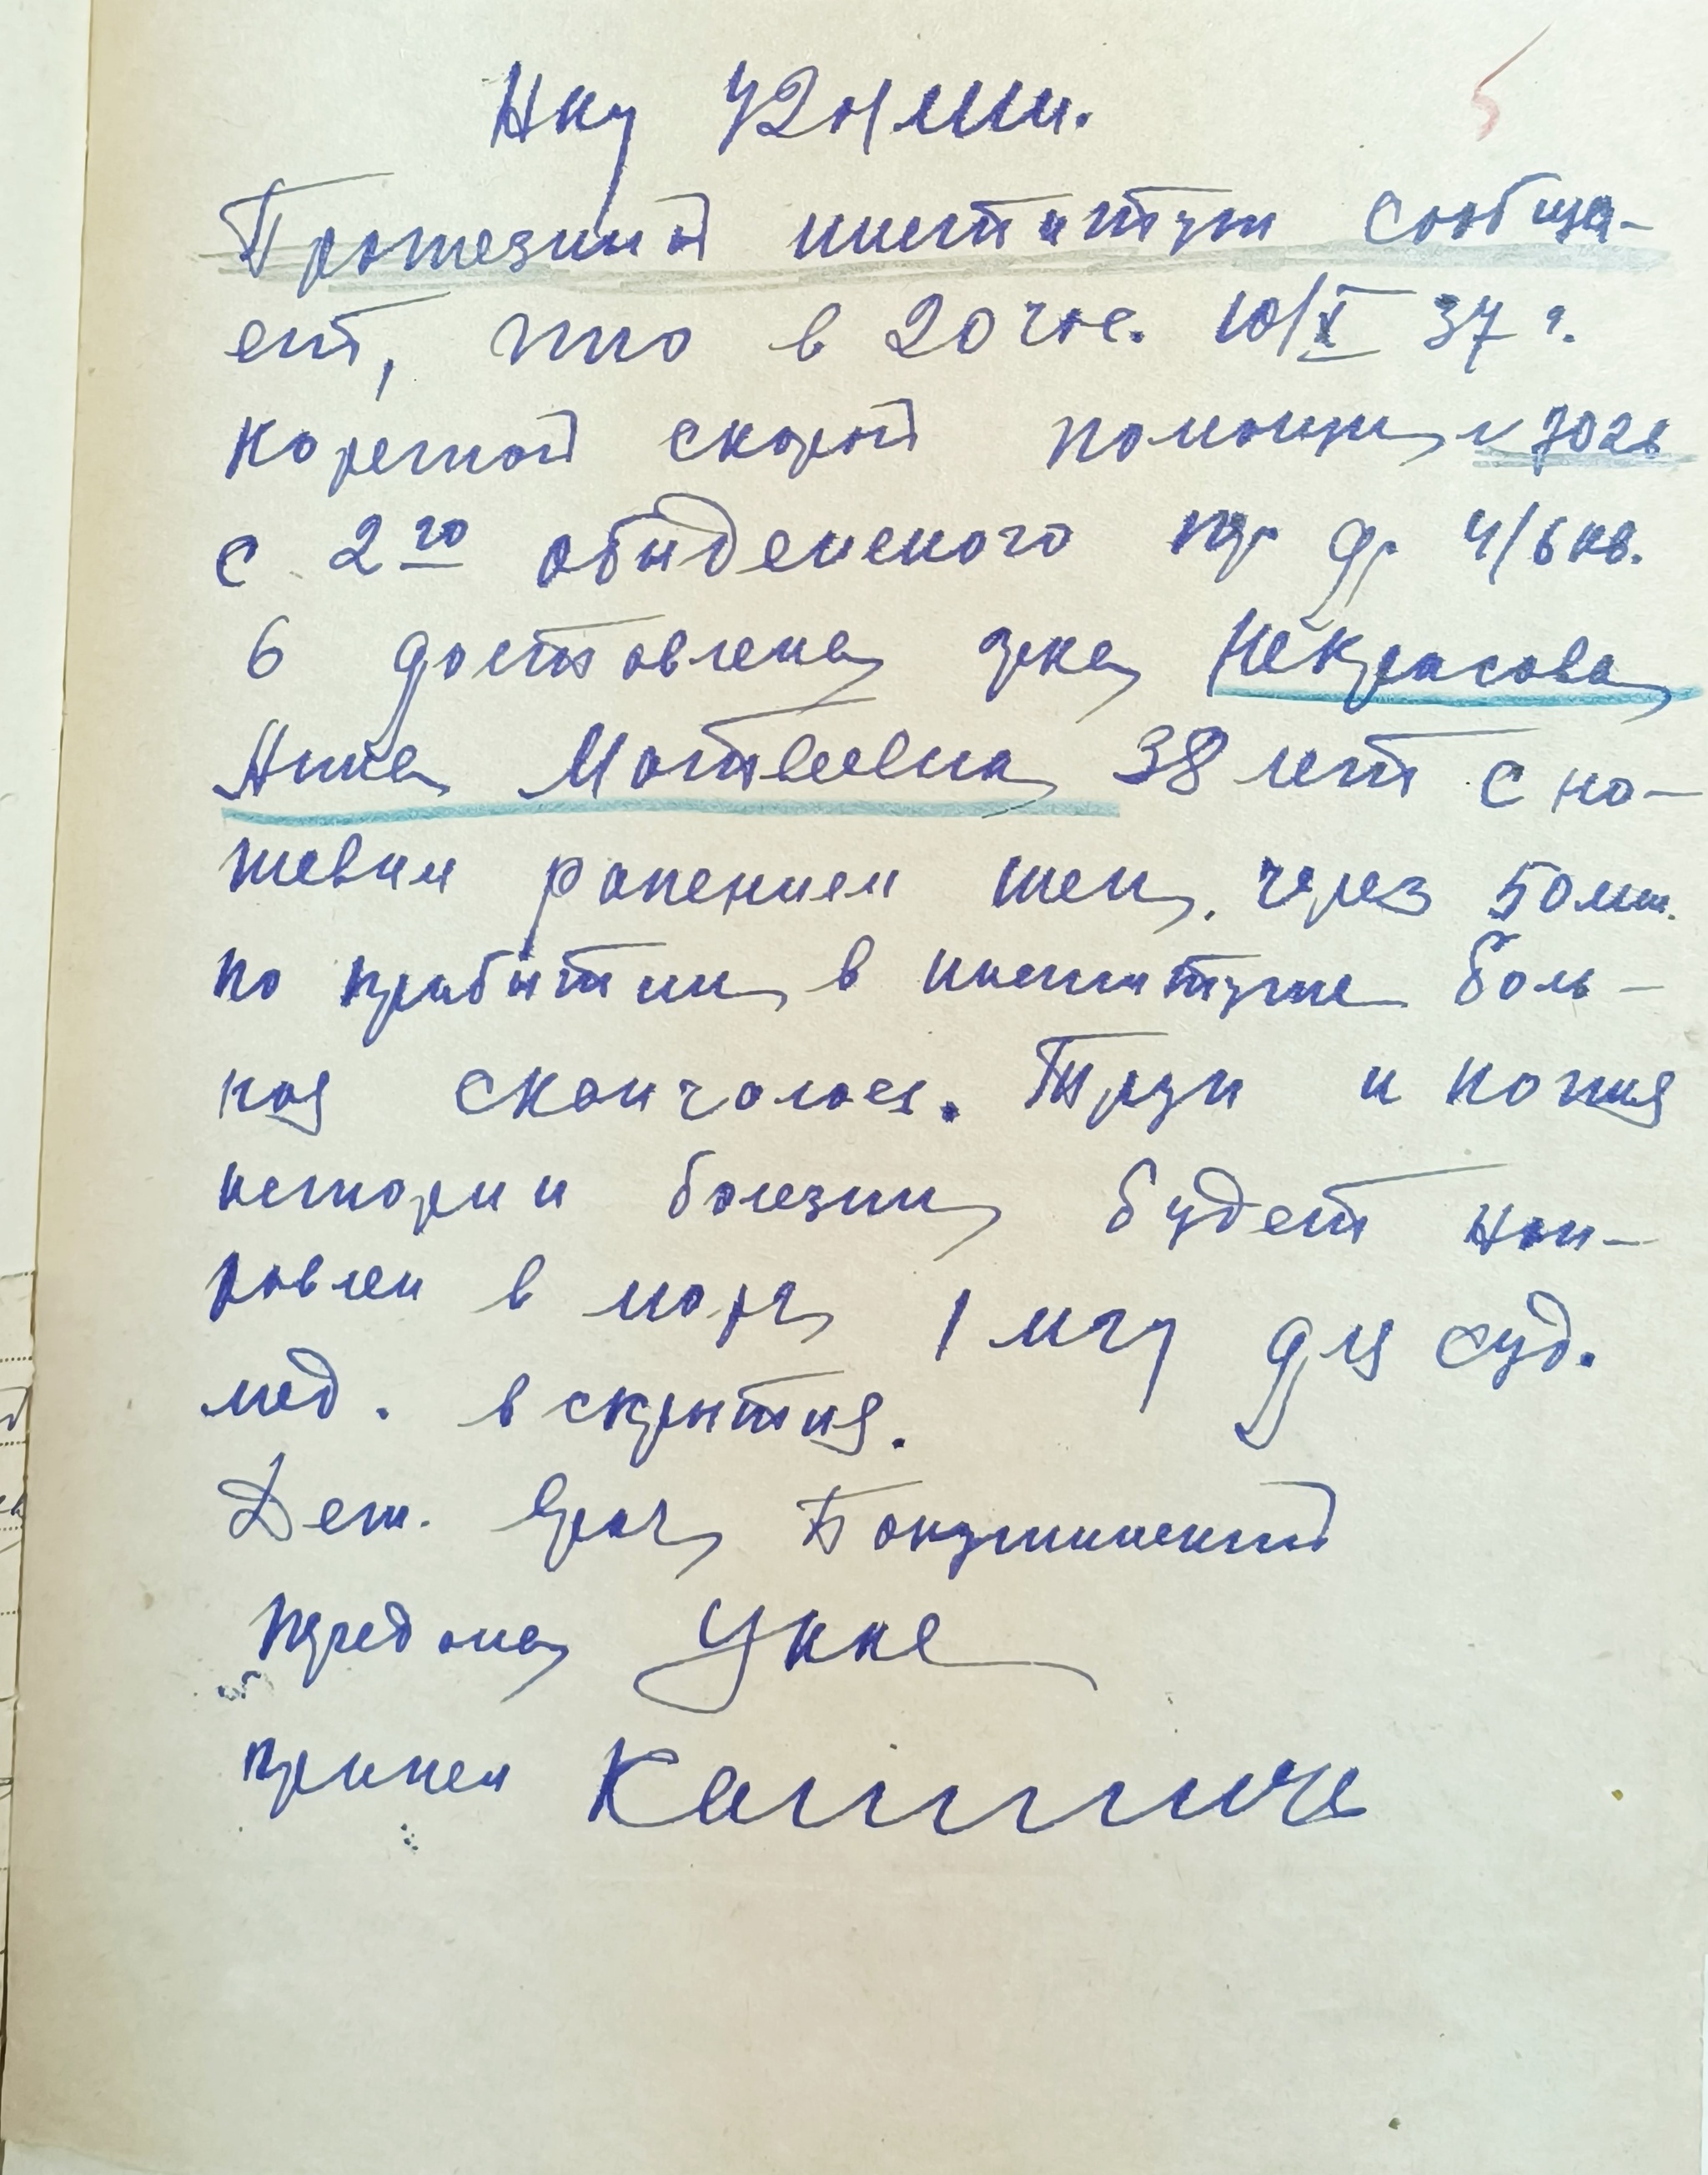 Нку 72 о/мил.
5
Протезный институт сообща-
ет, что в 20 час. 10/X 37 г.
каретой скорой помощи N 7028
с 2го обыденского пр д. 4/6 кв.
6 доставлена гр-ка Некрасова
Анна Матвеевна 38 лет с но-
жевым ранением шеи, через 50 мин.
по прибытии в институте боль-
ная скончалась. Труп и копия
истории болезни будет нап-
равлен в морг 1 мгу для суд.
мед. вскрытия.
Деж. Врач
Передала
принял